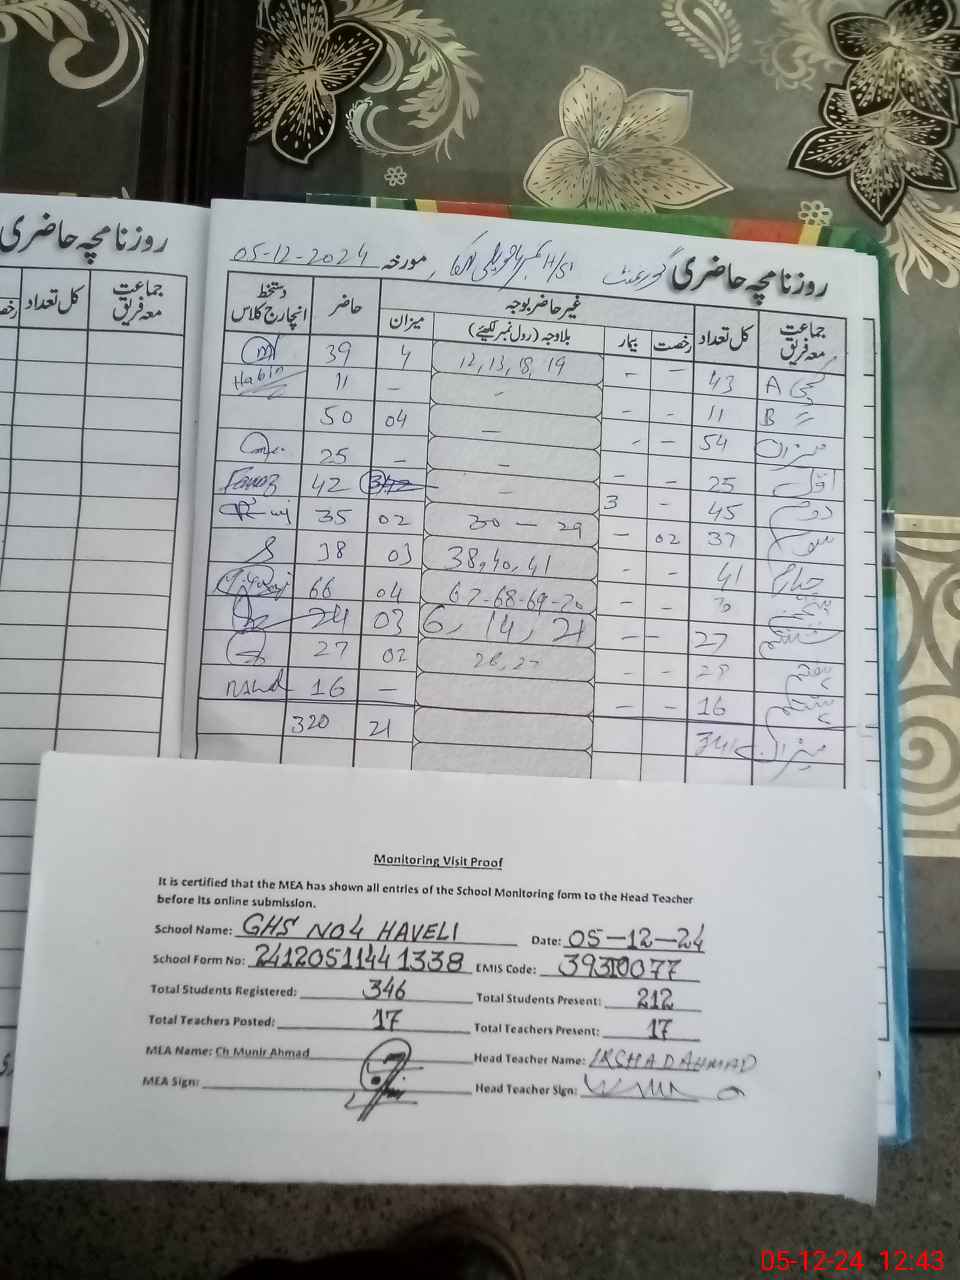 روزنامچہ حاضری
جماعت معہ فریق کل تعداد
روزنامچہ حاضری گورنمنٹ H/S مورخہ 05-12-2024
جماعت معہ فریق کل تعداد غیر حاضر بوجہ حاضر دستخط انچارج کلاس
رخصت بیمار بلاوجہ (رول نمبر لکھیئے) میزان
کچی A 43 - - 12, 13, 18, 19 4 39
〃 B 11 - - - - 11 Habib
میزان 54 - - - 04 50
اول 25 - - - - 25
دوم 45 - 3 - 42 Fawaz
سوم 37 02 - 30 - 29 02 35
چہارم 41 - - 38, 40, 41 03 38
پنجم 70 - - 67-68-69-70 04 66
ششم 27 - - 6, 14, 21 03 24
ہفتم 29 - - 02 27
ہشتم 16 - - - 16
میزان 341 21 320
Monitoring Visit Proof
It is certified that the MEA has shown all entries of the School Monitoring form to the Head Teacher
before its online submission.
School Name: GHS NO4 HAVELI Date: 05-12-24
School Form No: 24120511441338 EMIS Code: 39310077
Total Students Registered: 346 Total Students Present: 212
Total Teachers Posted: 17 Total Teachers Present: 17
MEA Name: Ch Munir Ahmad Head Teacher Name: IRSHAD AHMAD
MEA Sign: Head Teacher Sign:
05-12-24 12:43